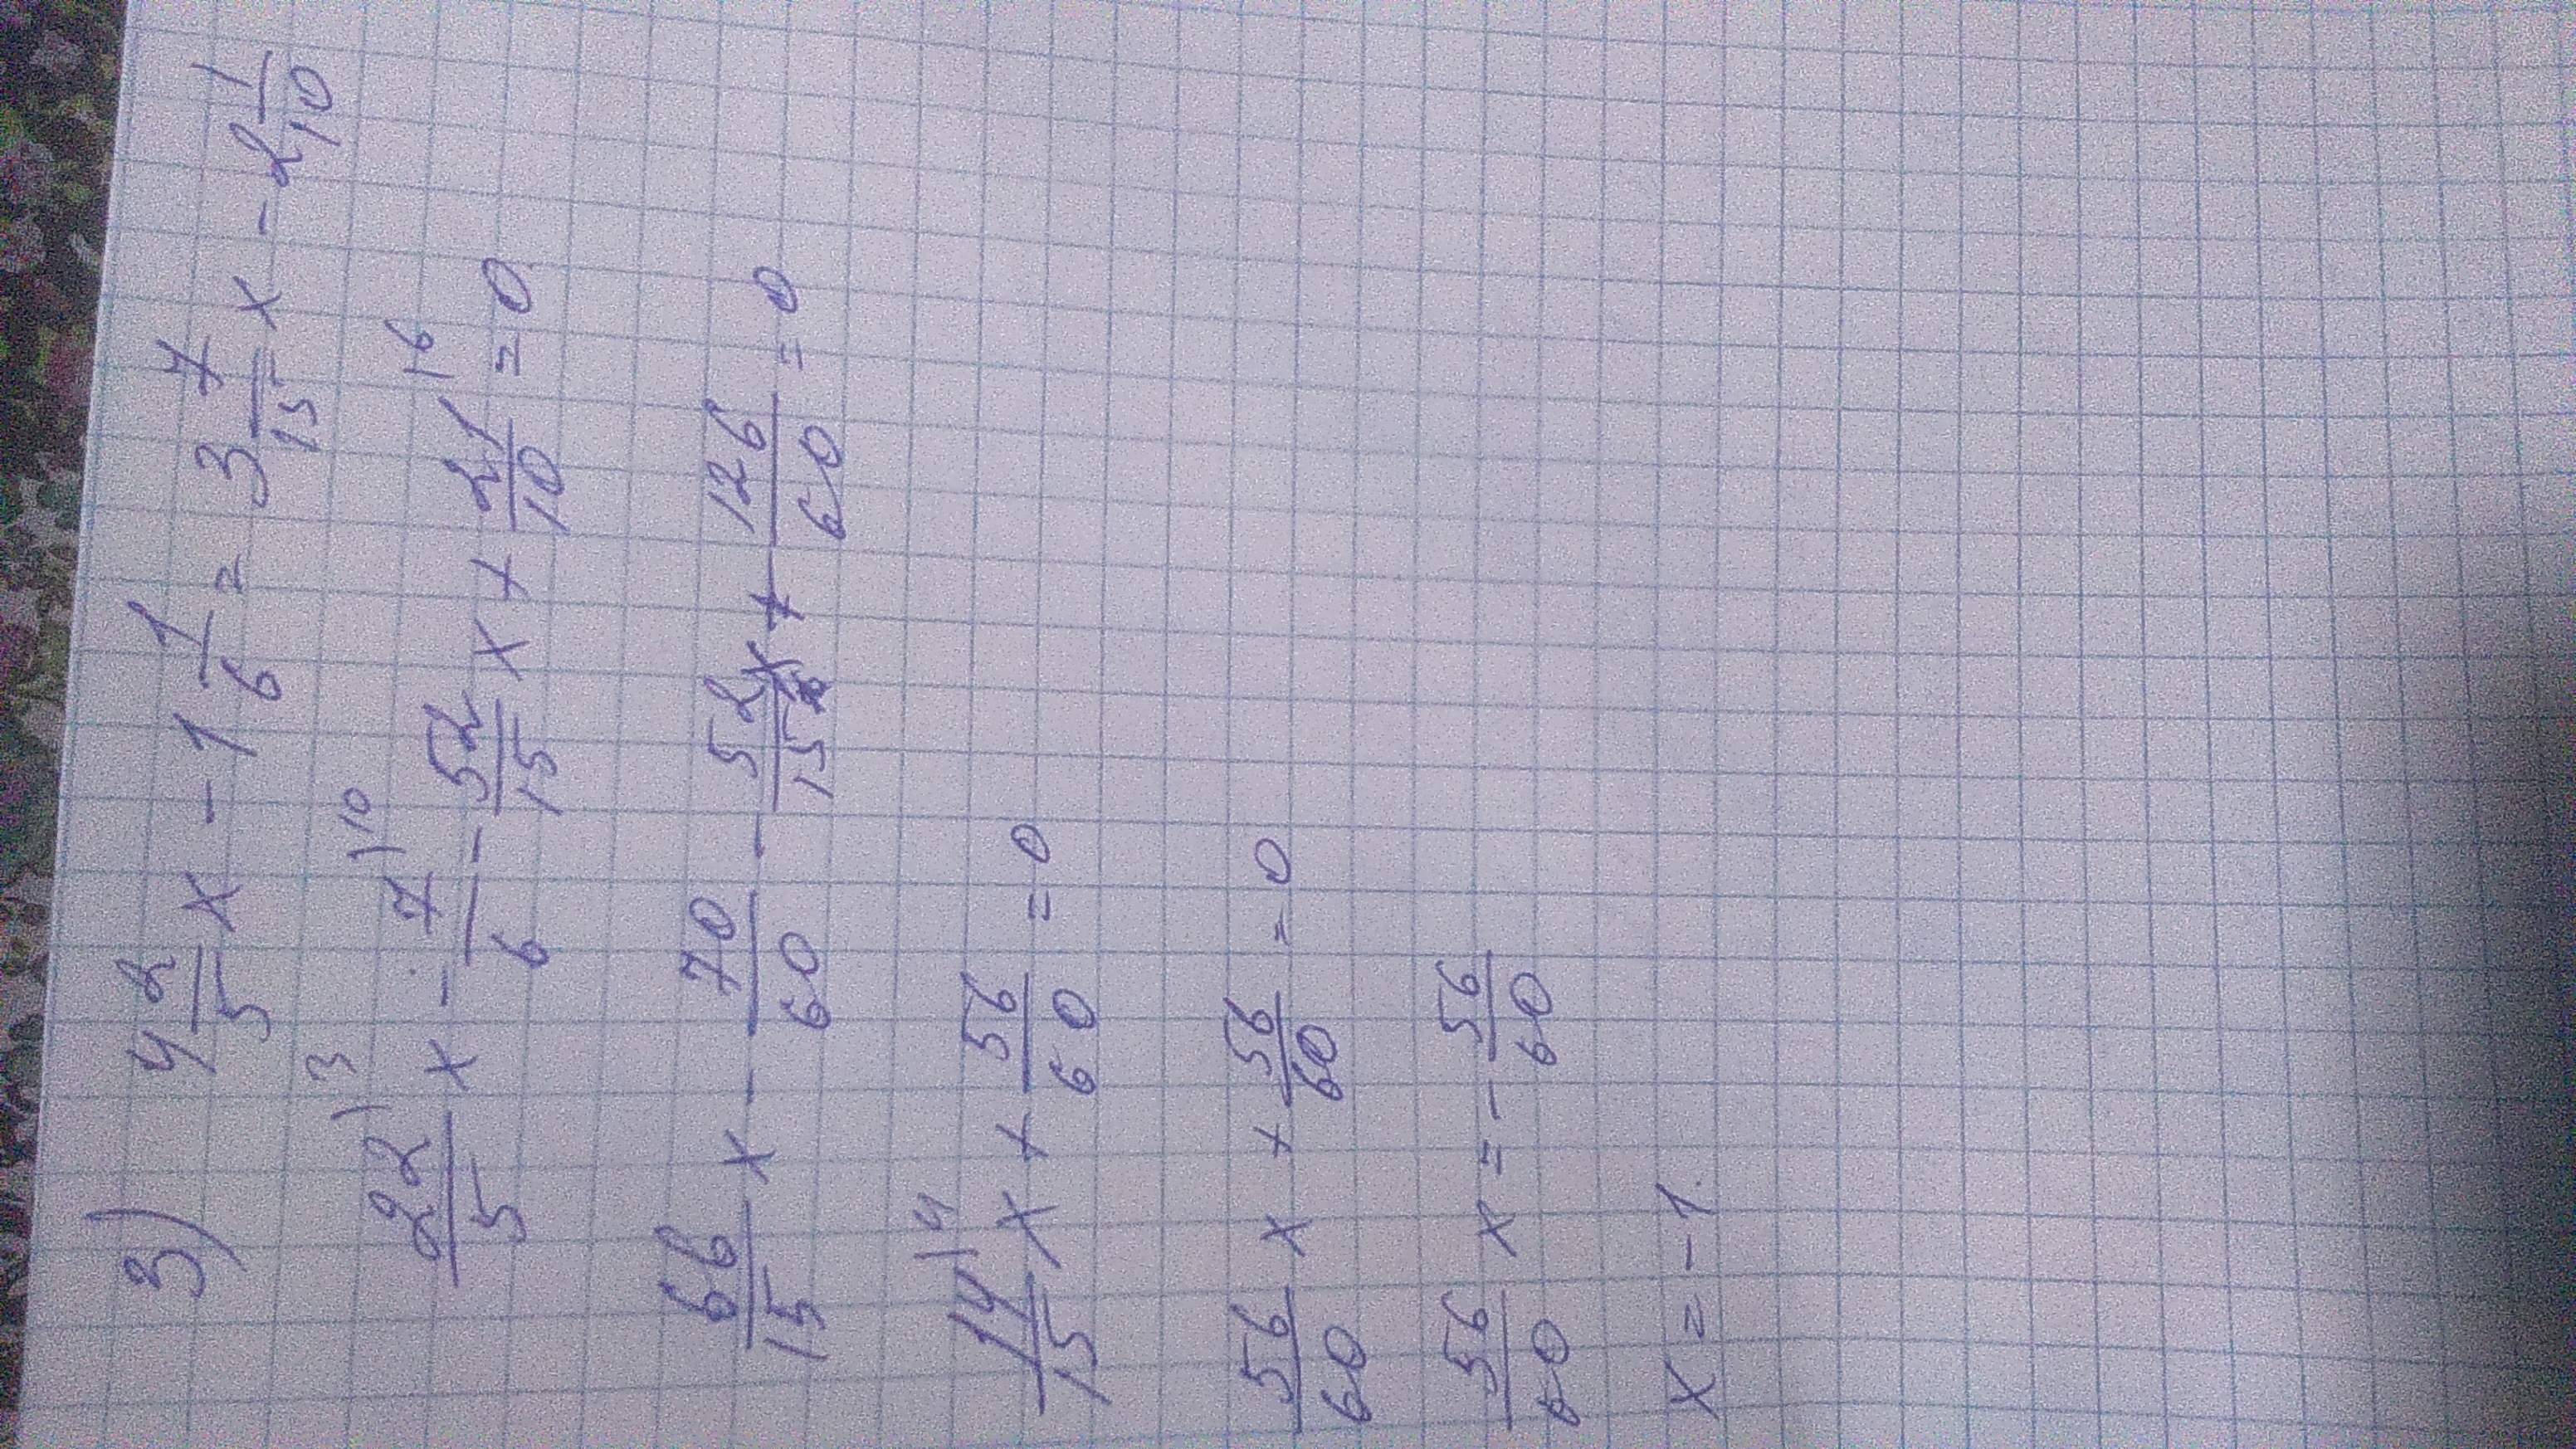 3) 4 2/5 x - 1 1/6 = 3 7/15 x - 2 1/10
22/5 |3 x - 7/6 |10 - 52/15 x + 21/10 |6 = 0
66/15 x - 70/60 - 52/15 x + 126/60 = 0
14/15 |4 x + 56/60 = 0
56/60 x + 56/60 = 0
56/60 x = - 56/60
x = -1.